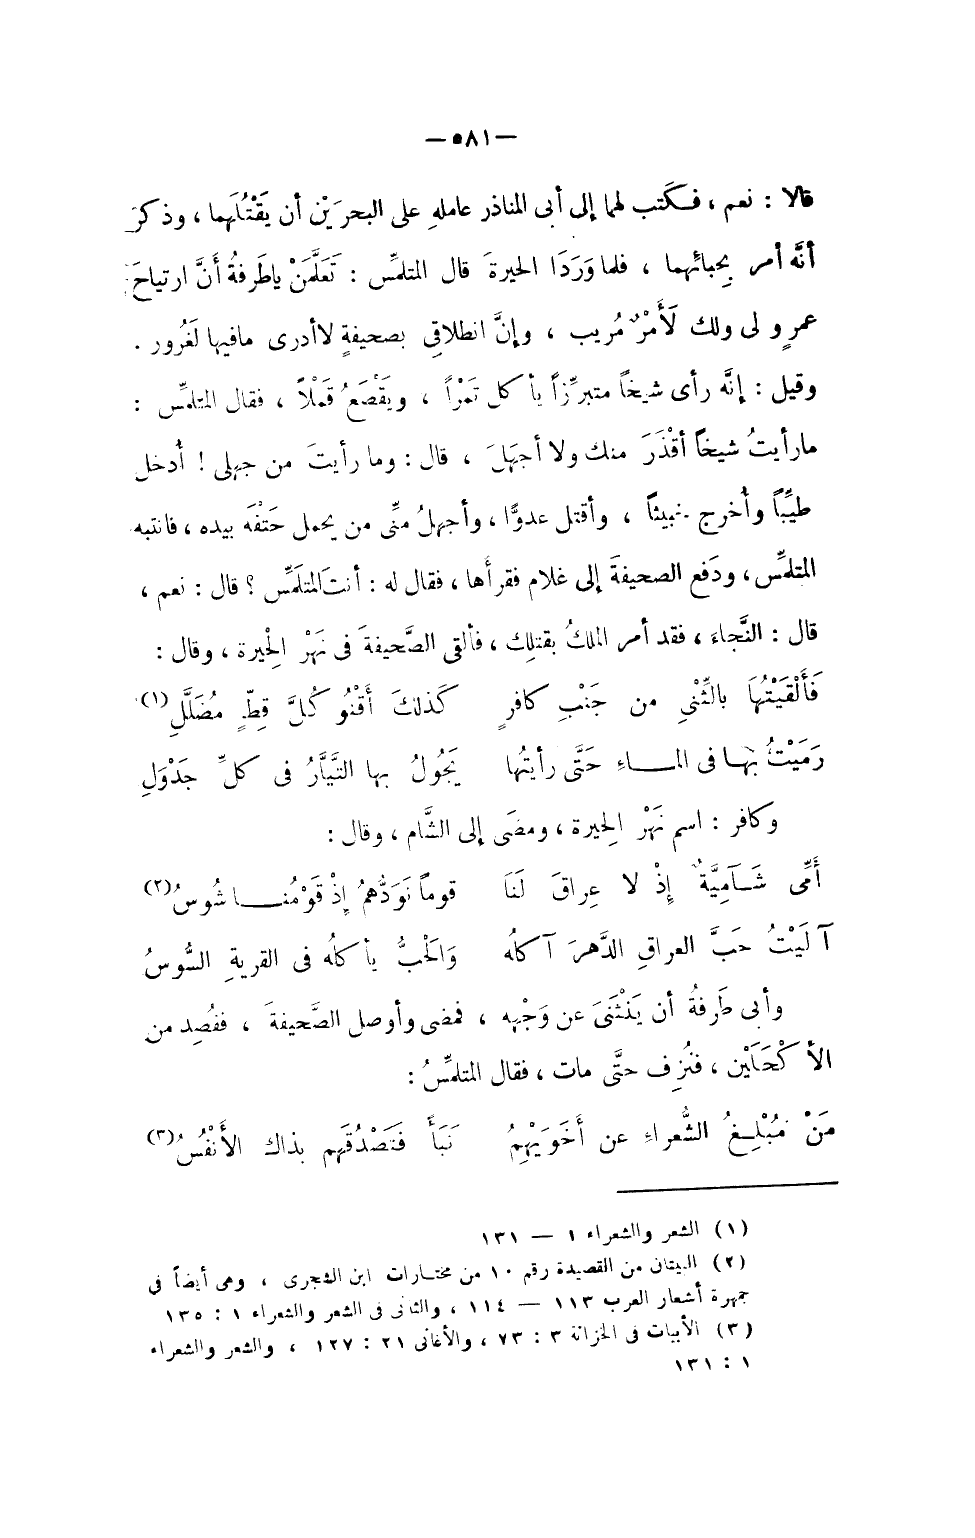 — ٥٨١ —
قالا : نعم ، فكتب لهما إلى أبى المناذر عامله على البحرَيْن أن يَقْتُلَهما ، وذكرَ
أنَّه أمر بِحبائهما ، فلما وَرَدَا الحيرةَ قال المتلمِّس : تَعَلَّمَنْ ياطَرفةُ أنَّ ارتياحَ
عمرٍو لى ولك لَأَمْرٌ مُريب ، وإنَّ انطلاقِى بصحيفةٍ لاأدرى مافيها لَغُرور .
وقيل : إنَّه رأى شيخاً متبرِّزاً يأكل تَمْراً ، ويَقْصَعُ قَمْلاً ، فقال المتلمِّس :
مارأيتُ شيخاً أقْذَرَ منك ولا أجهَلَ ، قال : وما رأيتَ من جهلى ! أُدخل
طيِّباً وأُخرج خبيثاً ، وأقتل عدوًّا ، وأجهلُ منِّى من يحمل حَتْفَه بيده ، فانتبه
المتلمِّس ، ودَفع الصحيفةَ إلى غلام فقرأها ، فقال له : أنتَ المتلَمِّس ؟ قال : نعم ،
قال : النَّجاءَ ، فقد أمر الملكُ بقتلِك ، فألقى الصَّحيفةَ فى نَهْرِ الِحيرة ، وقال :
فَأَلْقَيْتُهَا بالثِّنْىِ من جَنْبِ كافرٍ كَذلكَ أَقْنُو كُلَّ قِطٍّ مُضَلَّلِ(١)
رَمَيْتُ بها فى المـــاءِ حَتَّى رأيتُها يَجُولُ بها التَّيَّارُ فى كلِّ جَدْوَلِ
وكافر : اسم نَهْرِ الحِيرة ، ومضَى إلى الشَّام ، وقال :
أُمِّى شَـآمِيَّةً إذْ لا عِراقَ لَنَا قوماً نَوَدُّهمُ إذْ قَوْمُنـــا شُوسُ(٢)
آلَيْتُ حَبَّ العراقِ الدَّهرَ آكلُه وَالحَبُّ يأكلُه فى القريةِ السُّوسُ
وأبى طَرفةُ أن يَنْثَنىَ عن وَجْهه ، فمضى وأوصل الصَّحيفةَ ، ففُصِد من
الأكْحَلَيْن ، فنُزِف حتَّى مات ، فقال المتلمِّسُ :
مَنْ مُبْلِـغُ الشُّعراءِ عن أخَوَيْهِمُ نَبَأً فتَصْدُقَهم بذاك الأنْفُسُ(٣)
(١) الشعر والشعراء ١ — ١٣١
(٢) البيتان من القصيدة رقم ١٠ من مختـارات ابن الشجرى ، وهى أيضاً فى
جمهرة أشعار العرب ١١٣ — ١١٤ ، والثانى فى الشعر والشعراء ١ : ١٣٥
(٣) الأبيات فى الخزانة ٣ : ٧٣ ، والأغانى ٢١ : ١٢٧ ، والشعر والشعراء
١ : ١٣١